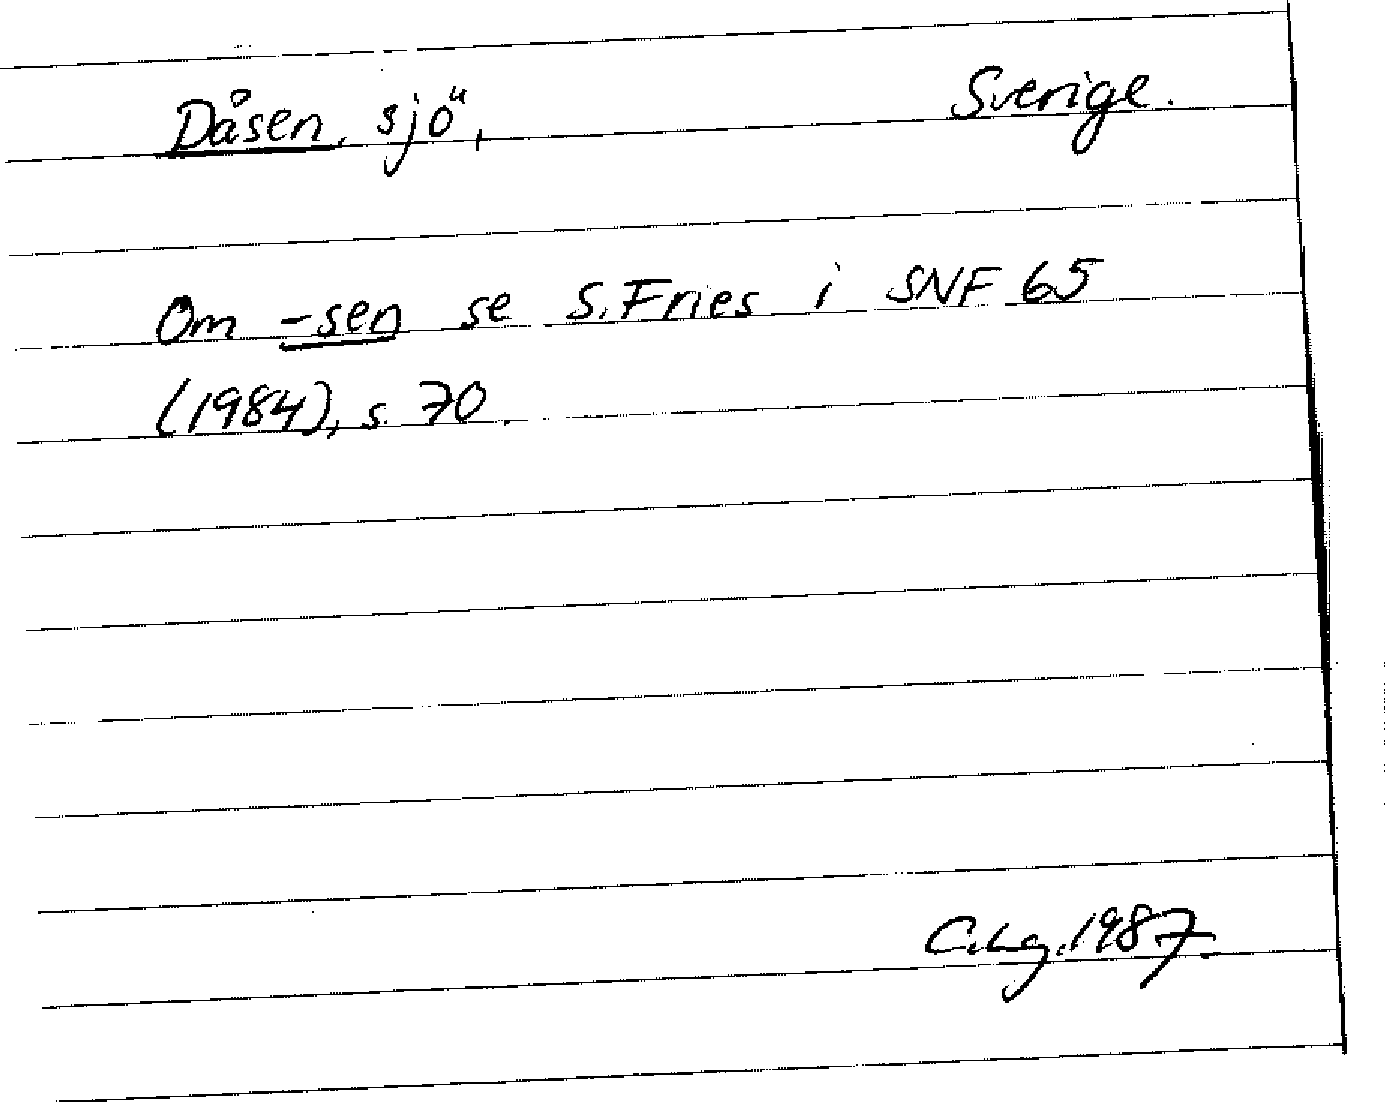 Dåsen, sjö, Sverige.
Om -sen se S. Fries i SNF 65
(1984), s. 70.
C.Lg. 1987.